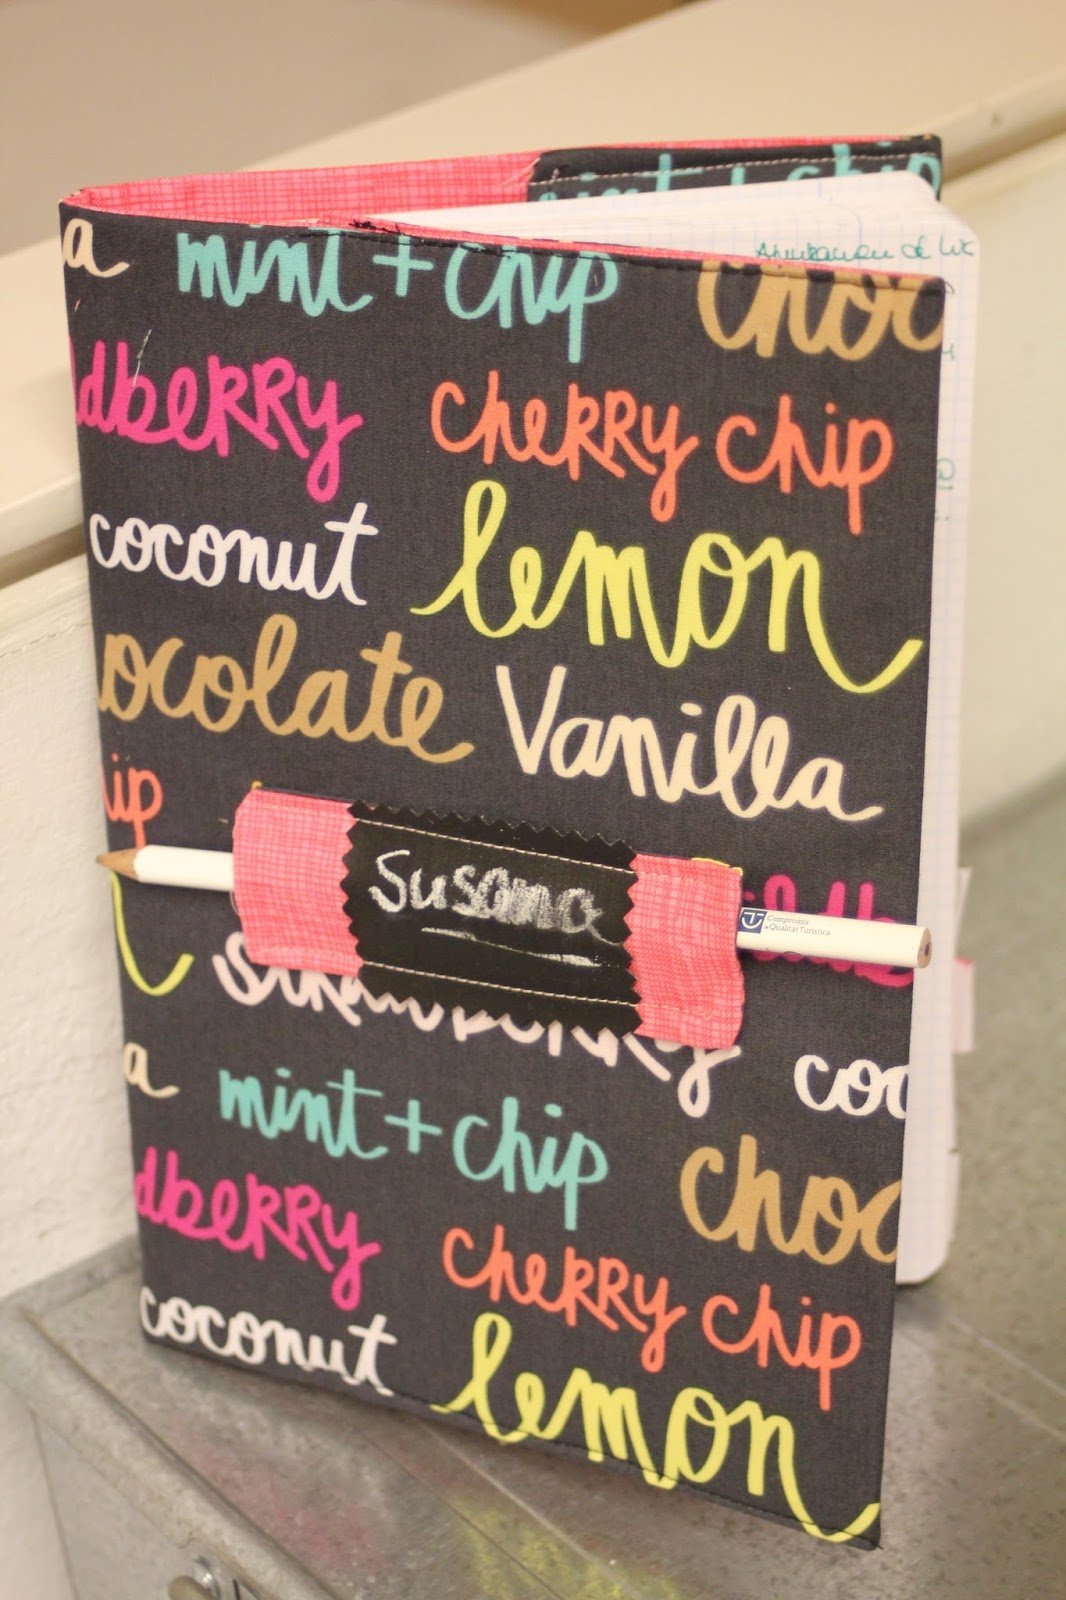 a mint + chip choc
dberry cherry chip
coconut lemon
ocolate Vanilla
hip
Susana
Compromís
Qualitat Turística
ildb
strawberry
coc
a mint + chip
choc
dberry cherry chip
coconut lemon